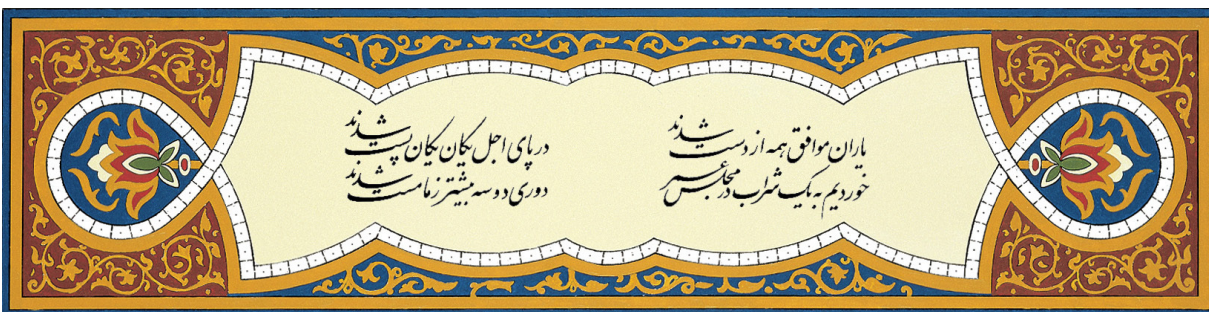 یاران موافق همه از دست شدند
در پای اجل یکان یکان پست شدند
خوردیم به یک شراب در مجلس عمر
دوری دو سه پیشتر ز ما مست شدند